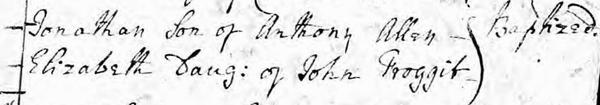 Jonathan Son of Anthony Allen - } Baptized.
Elizabeth Daug: of John Froggit -